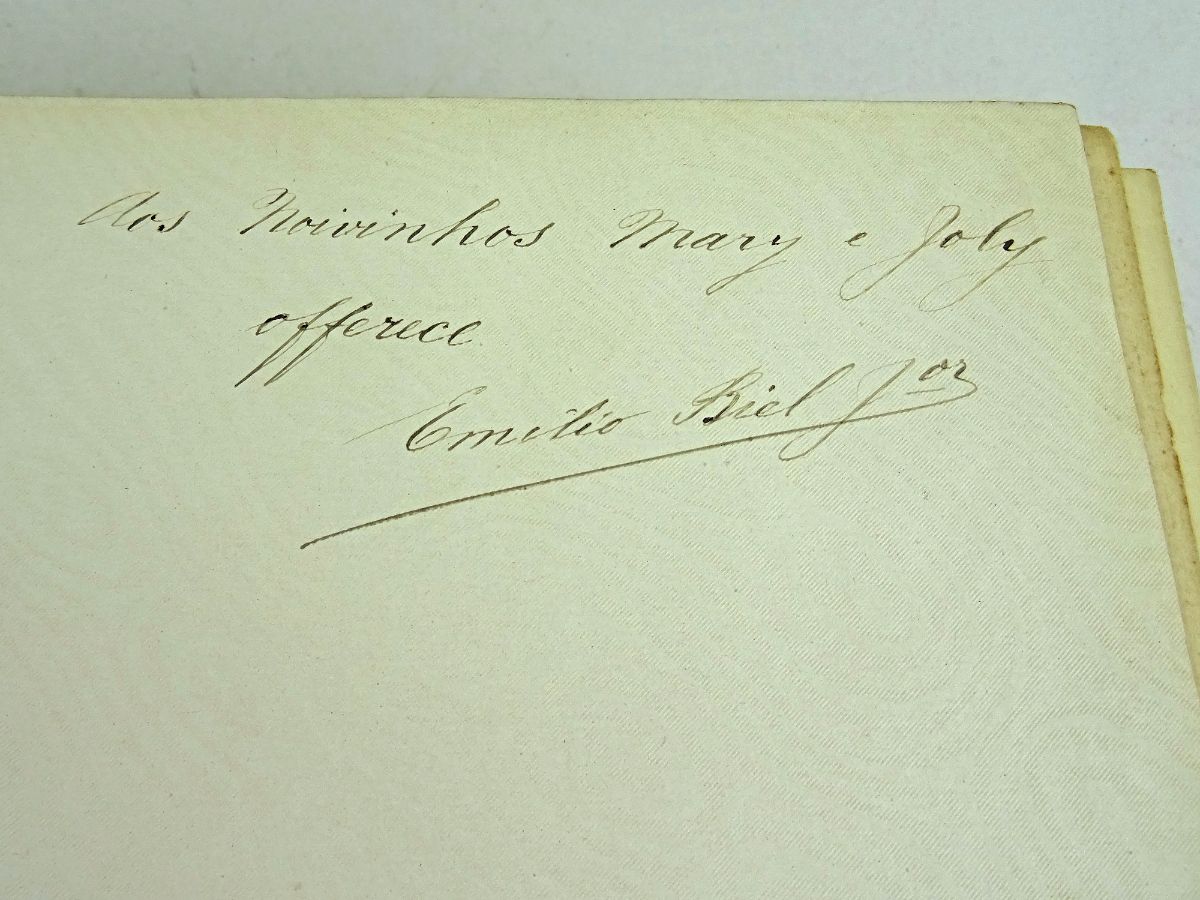 Aos Noivinhos Mary e Joly
offerece
Emilio Biel Jor